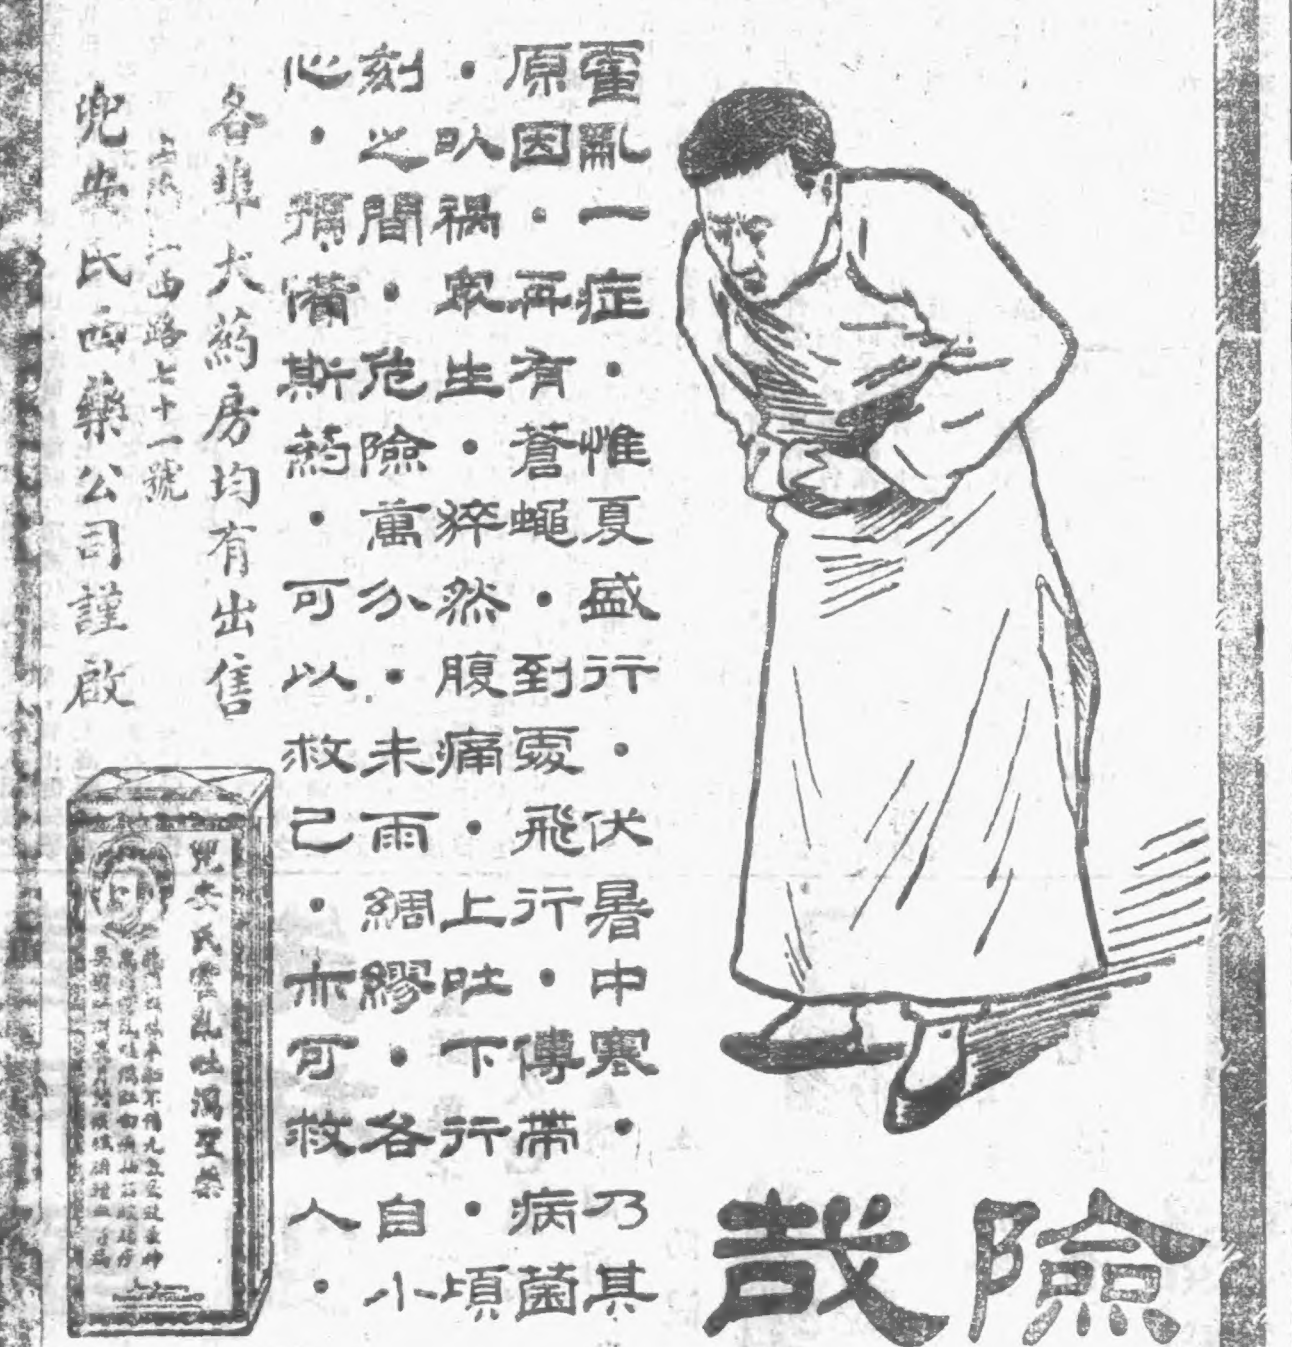 險哉
霍亂一症・惟夏盛行・伏暑中寒・乃其
原因・再有蒼蠅・到處飛行・傳帶病菌
・以禍眾生・猝然腹痛・上吐下行・頃
刻之間・危險萬分・未雨綢繆・各自小
心・預備斯药・可以救己・亦可救人・
各埠大药房均有出售
西路七十一號
兜安氏西藥公司謹啟
兜安氏霍亂吐瀉聖藥